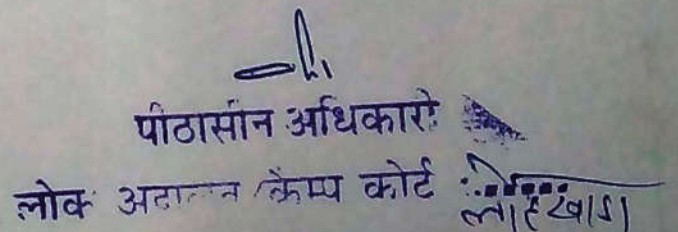 पीठासीन अधिकारी
लोक अदालत कैम्प कोर्ट